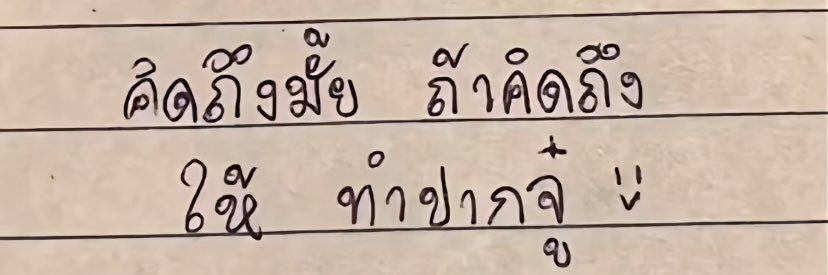 คิดถึงมั้ย ถ้าคิดถึง
ให้ ทำปากจู๋ :)